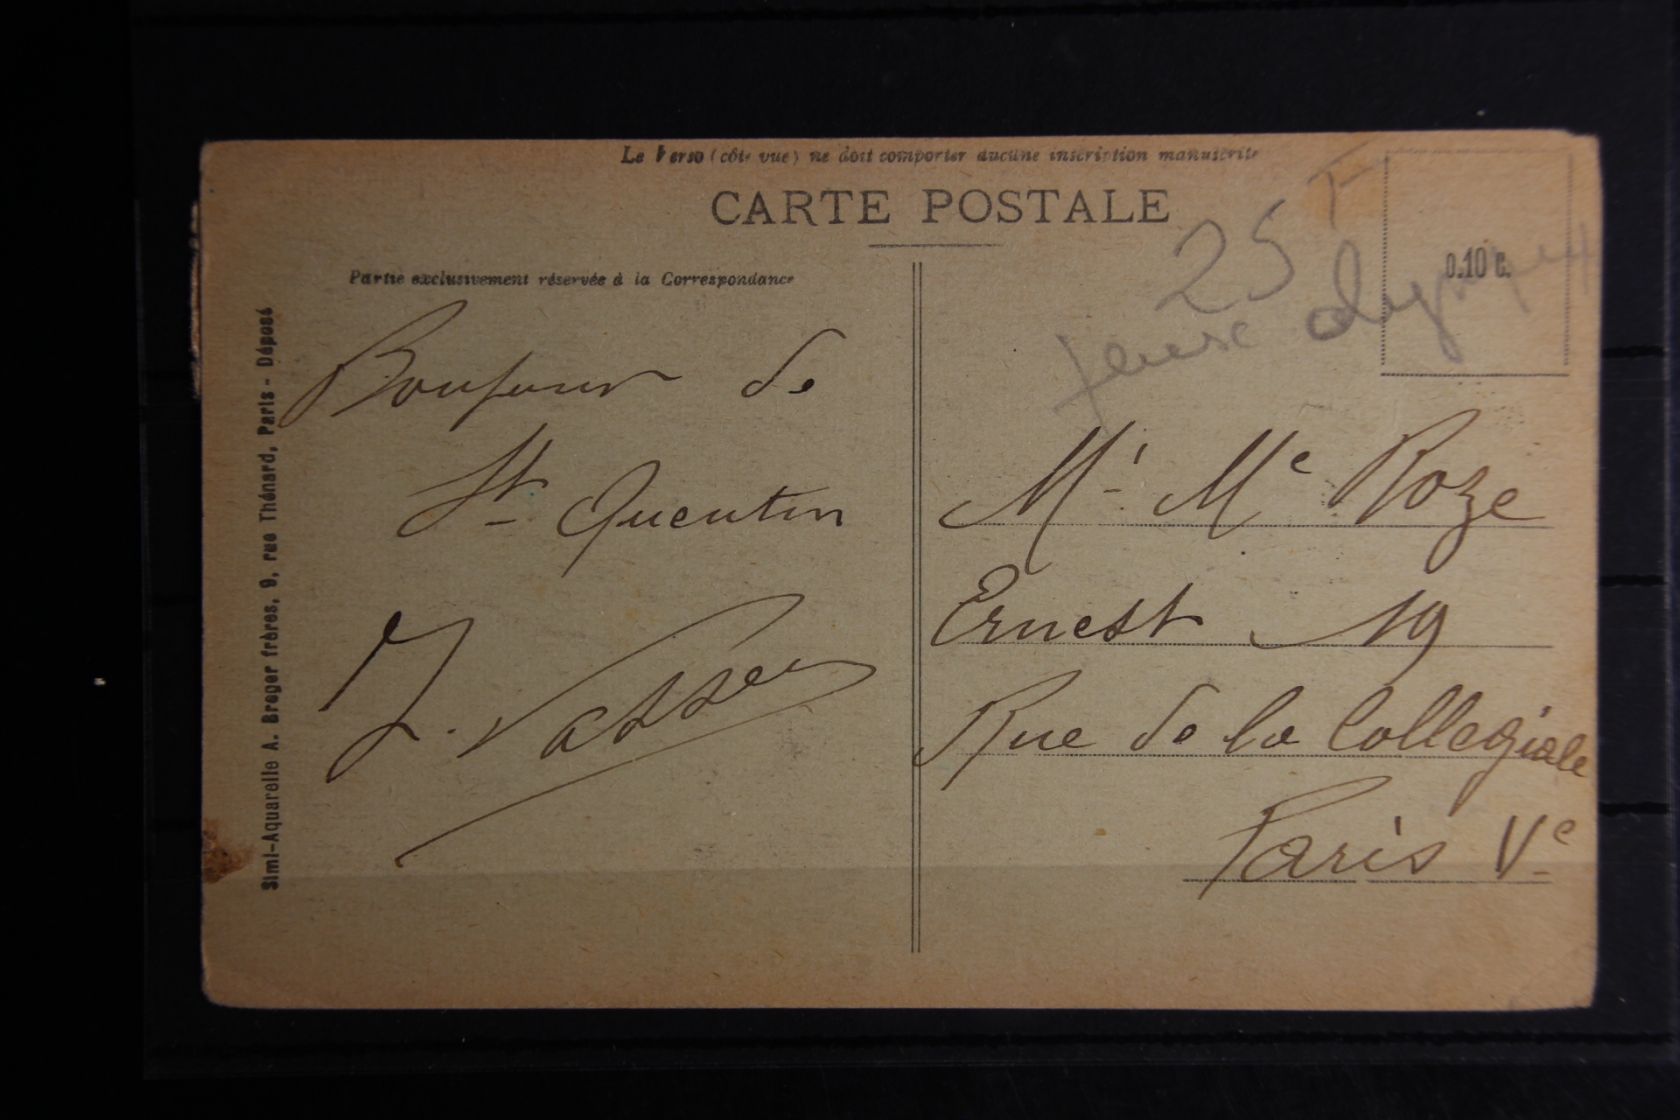 Le Verso (côté vue) ne doit comporter aucune inscription manuscrite
CARTE POSTALE
Partie exclusivement réservée à la Correspondance
25 F
0.10 c.
Bonjour de
St Quentin
Vasseu
Mr Me Roze
Ernest 19
Rue de la Collegiale
Paris Ve
Simi-Aquarelle A. Breger frères, 9, rue Thénard, Paris - Déposé